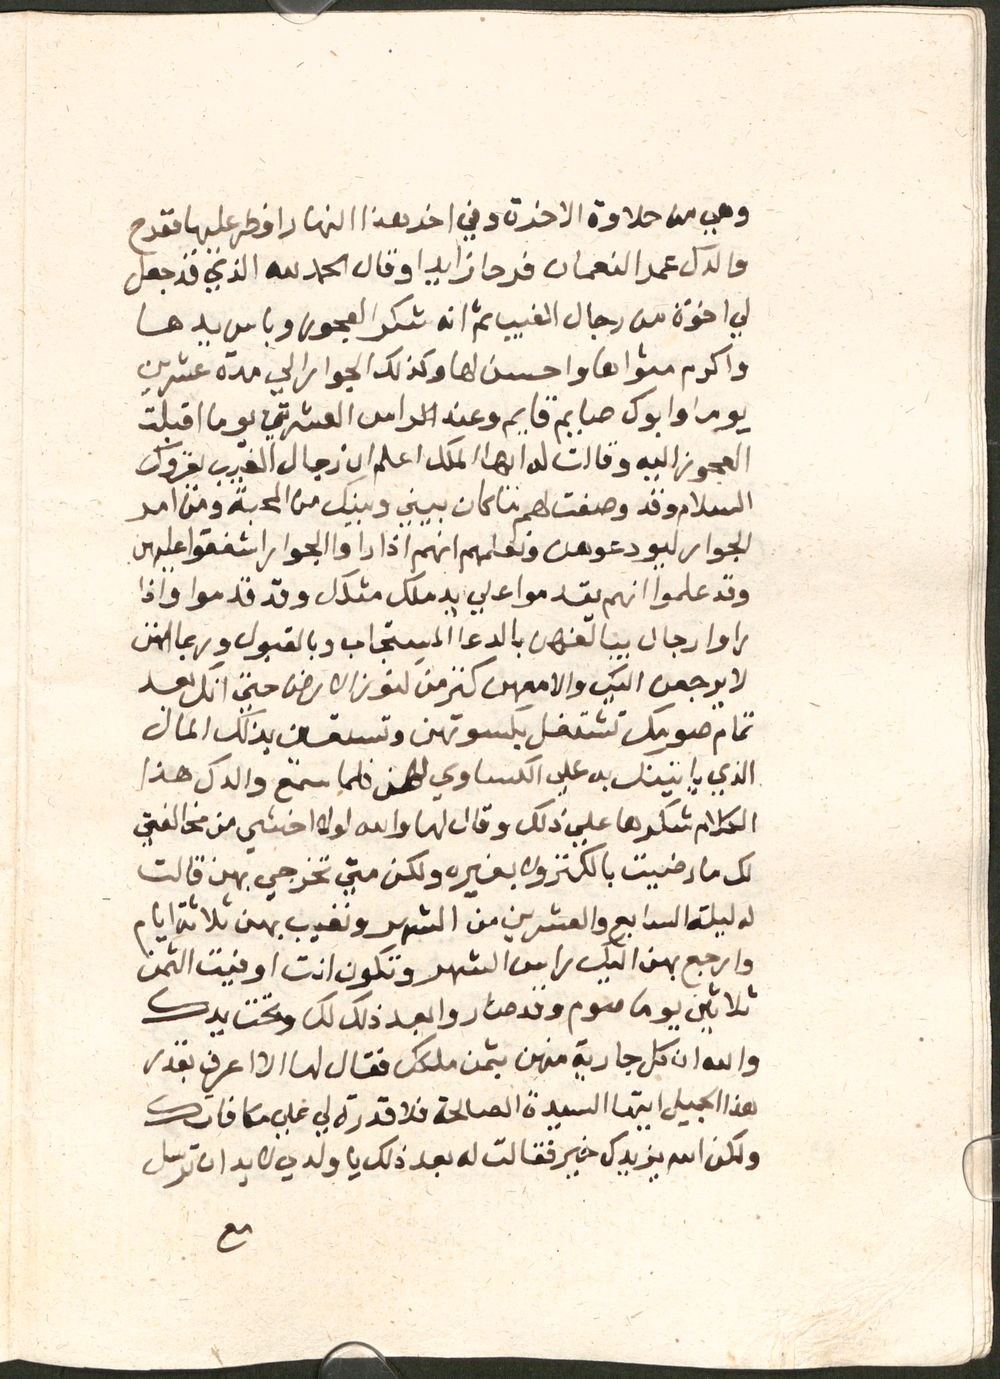 وهي من حلاوة الاخرة وفي اخر هذا النهار افطر عليها ففرح
والدك عمر النعمان فرحا زايدا وقال الحمد لله الذي قد جعل
لي اخوة من رجال الغيب ثم انه شكر العجوز وباس يدها
واكرم مثواها واحسن لها وكذلك الجوار الي مدة عشرين
يوما وابوك صايم قايم وعند الراس العشرين يوما اقبلت
العجوز اليه وقالت له ايها الملك اعلم ان رجال الغيب يقروك
السلام وقد وصفت لهم ما كان بيني وبينك من المحبة ومن امر
الجوار ليودعوهن ونعلمهم انهم اذا راوا الجوار اشفقوا عليهن
وقد علموا انهم يقدموا علي يد ملك مثلك وقد قدموا واذا
راوا رجال بيالغهن بالدعا المستجاب وبالقبول وربما انهن
لا يرجعن اليك والا معهن كنز من كنوز الارض حتي انك بعد
تمام صومك تشتغل بكسوتهن وتستعين بذلك المال
الذي ياتينك به علي الكساوي لهن فلما سمع والدك هذا
الكلام شكرها علي ذلك وقال لها والله لولا اخشي من مخالفتي
لك ما رضيت بالكنز ولا بغيره ولكن متي تخرجي بهن قالت
له ليلة السابع والعشرين من الشهر ونغيب بهن ثلاثة ايام
وارجع بهن اليك راس الشهر وتكون انت اوفيت الثمن
ثلاثين يوما صوم وقد صاروا بعد ذلك لك وتحت يدك
والله ان كل جارية منهن بثمن ملكك فقال لها الا اعرف بقدر
هذا الجميل ايتها السيدة الصالحة فلا قدرة لي علي مكافاتك
ولكن الله يزيدك خير فقالت له بعد ذلك يا ولدي لا بد ان ترسل
مع